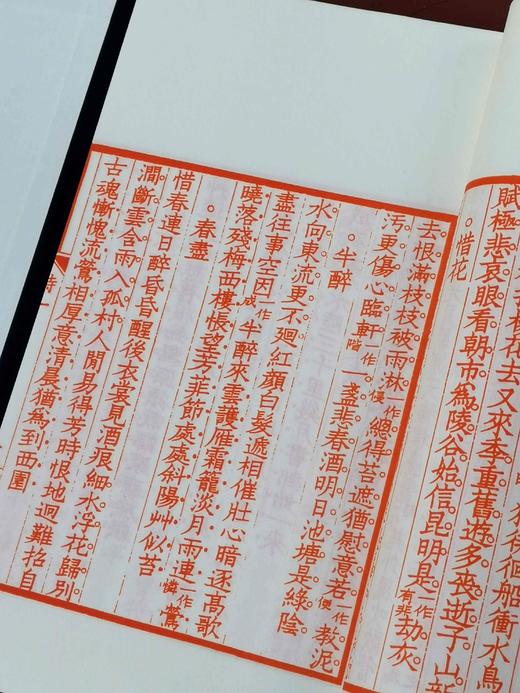 衝水鳥
花去又來李重舊遊多喪逝子山新
賦極悲哀眼看朝市為陵谷始信昆明是一作有非劫灰
。惜花
去恨滿枝枝被雨淋一作便總得苔遮猶慰意若一作便教泥
污更傷心臨軒一作階一盞悲春酒明日池塘是綠陰
。半醉
水向東流更不廻紅顏白髮遞相催壯心暗逐高歌
盡往事空因一作成半醉來雲護雁霜籠淡月雨連一作憐鶯
曉落殘梅西樓悵望芳菲節處處斜陽艸似苔
。春盡
惜春連日醉昏昏醒後衣裳見酒痕細水浮花歸別
澗斷雲含雨入孤村人閒易得芳時恨地迥難招自
古魂慚愧流鶯相厚意清晨猶為到西園